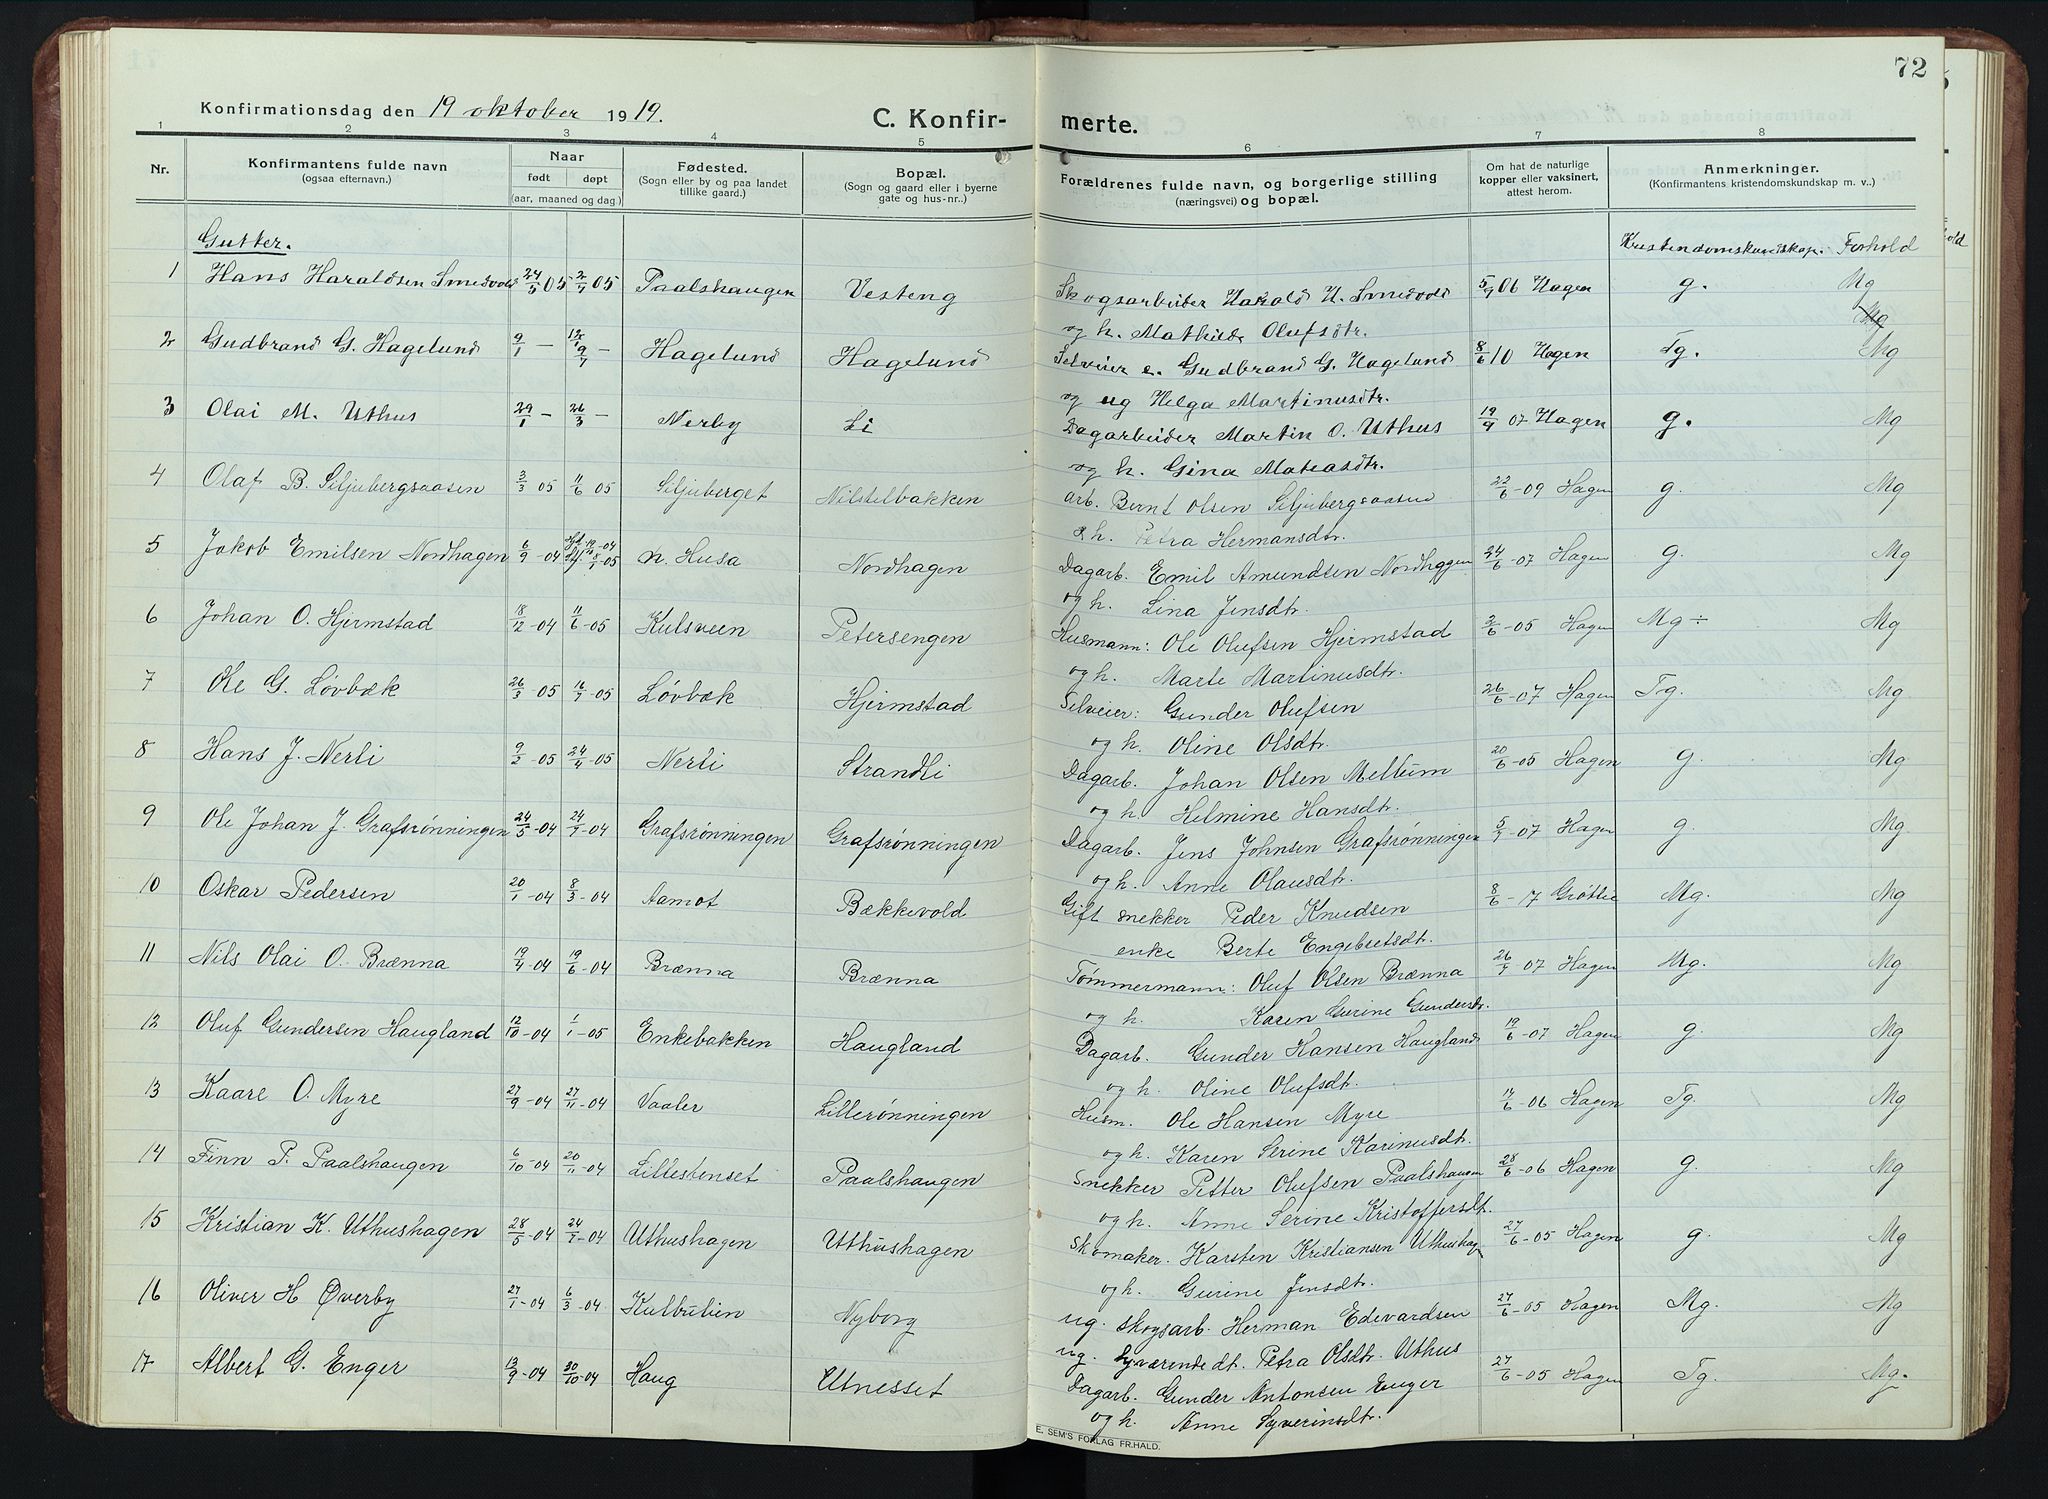 72
Konfirmationsdag den 19 oktober 1919.
C. Konfir- merte.
1 2 3 4 5 6 7 8
Nr.
Konfirmantens fulde navn
(ogsaa efternavn.)
Naar
født døpt
(aar, maaned og dag.)
Fødested.
(Sogn eller by og paa landet
tillike gaard.)
Bopæl.
(Sogn og gaard eller i byerne
gate og hus-nr..)
Forældrenes fulde navn, og borgerlige stilling
(næringsvei) og bopæl.
Om hat de naturlige
kopper eller vaksinert,
attest herom.
Anmerkninger.
(Konfirmantens kristendomskundskap m. v..)
Gutter.
Kristendomskundskap. Forhold
1 Hans Haraldsen Smedvold 24/5 05 2/7 05 Paalshaugen Vesteng Skogsarbeider Harald H. Smedvold 5/9 06 Hagen g. Mg
og h. Mathilde Olufsdtr. Mg
2 Gudbrand G. Hagelund 9/1 — 12/1 9/7 — Hagelund Hagelund Selveier e. Gudbrand G. Hagelund 8/6 10 Hagen Tg. Mg
og ug Helga Martinusdtr.
3 Olai M. Uthus 29/1 — 26/3 — Nerby Li Dagarbeider Martin O. Uthus 19/9 07 Hagen g. Mg
og h. Gina Matiasdtr.
4 Olaf B. Siljubergsaasen 3/3 05 11/6 05 Siljuberget Nilstelbakken arb. Bernt Olsen Siljubergsaasen 22/6-09 Hagen g. Mg
& h. Petra Hermansdtr.
5 Jakob Emilsen Nordhagen 6/9-04 n. Husa Nordhagen Dagarb. Emil Amundsen Nordhagen 24/6-07 Hagen g. Mg
og h. Lina Jensdtr.
6 Johan O. Hjermstad 18/12-04 11/6-05 Kulsveen Petersengen Husmann: Ole Olufsen Hjermstad 3/6-05 Hagen Mg ÷ Mg
og h. Marte Martinusdtr.
7 Ole G. Løvbæk 26/3-05 16/7-05 Løvbæk Hjermstad Selveier: Gunder Olufsen 26/6-07 Hagen Tg. Mg
og h. Oline Olsdtr.
8 Hans J. Nerli 9/2-05 24/4-05 Nerli Strandli Dagarb. Johan Olsen Mellum 20/6-05 Hagen g. Mg
og h. Helmine Hansdtr.
9 Ole Johan J. Grafsrønningen 24/5-04 24/7-04 Grafsrønningen Grafsrønningen Dagarb. Jens Johnsen Grafsrønningen 5/7-07 Hagen g. Mg.
og h. Anne Olausdtr.
10 Oskar Pedersen 20/1-04 8/3-04 Aamot Bækkevold Gift snekker Peder Knudsen 8/6-17 Mg. Mg
enke Berte Engebretsdtr.
11 Nils Olai O. Brænna 19/4-04 19/6-04 Brænna Brænna Tømmermann: Oluf Olsen Brænna 26/7-07 Hagen Mg. Mg
og h. Karen Gurine Gundersdtr.
12 Oluf Gundersen Haugland 12/10-04 1/1-05 Enkebakken Haugland Dagarb. Gunder Hansen Haugland 19/6-07 Hagen g. Mg
og h. Oline Olufsdtr.
13 Kaare O. Myre 27/9-04 27/11-04 Vaaler Lillerønningen Husm. Ole Hansen Myre 14/6-06 Hagen Tg. Mg
og h. Karen Serine Karinusdtr.
14 Finn P. Paalshaugen 6/10-04 20/11-04 Lillestenset Paalshaugen Snekker Petter Olufsen Paalshaugen 28/6-06 Hagen g. Mg
og h. Anne Serine Kristoffersdt.
15 Kristian K. Uthushagen 28/5-04 24/7-04 Uthushagen Uthushagen Skomaker. Karsten Kristiansen Uthushag 27/6-05 Hagen g. Mg
og h. Gurine Jensdtr.
16 Oliver H Øverby 27/1-04 6/3-04 Kulbulien Nyborg ug. skogsarb. Herman Edevardsen 27/6-05 Hagen Mg. Mg
ug. tyværende dt. Petra Olsdtr. Uthus
17 Albert G. Enger 13/9-04 30/10-04 Haug Utnesset Dagarb. Gunder Antonsen Enger 27/6-05 Hagen Tg. Mg.
og h. Anne Syverinsdtr.
E. SEM'S FORLAG FR.HALD.